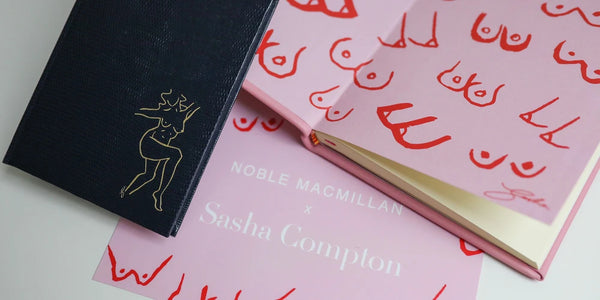 NOBLE MACMILLAN
x
Sasha Compton